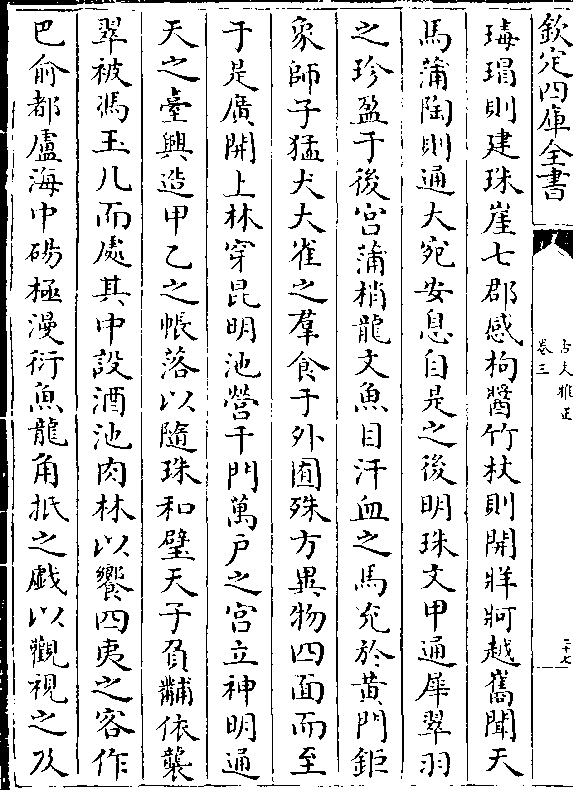 欽定四庫全書
古文雅正
卷三
二十七
瑇瑁則建珠崖七郡感枸醬竹杖則開牂牁越嶲聞天
馬蒲陶則通大宛安息自是之後明珠文甲通犀翠羽
之珍盈于後宮蒲梢龍文魚目汗血之馬充於黄門鉅
象師子猛犬大雀之羣食于外囿殊方異物四面而至
于是廣開上林穿昆明池營千門萬户之宮立神明通
天之臺興造甲乙之帳落以隨珠和璧天子負黼依襲
翠被馮玉几而處其中設酒池肉林以饗四夷之客作
巴俞都盧海中碭極漫衍魚龍角抵之戲以觀視之及